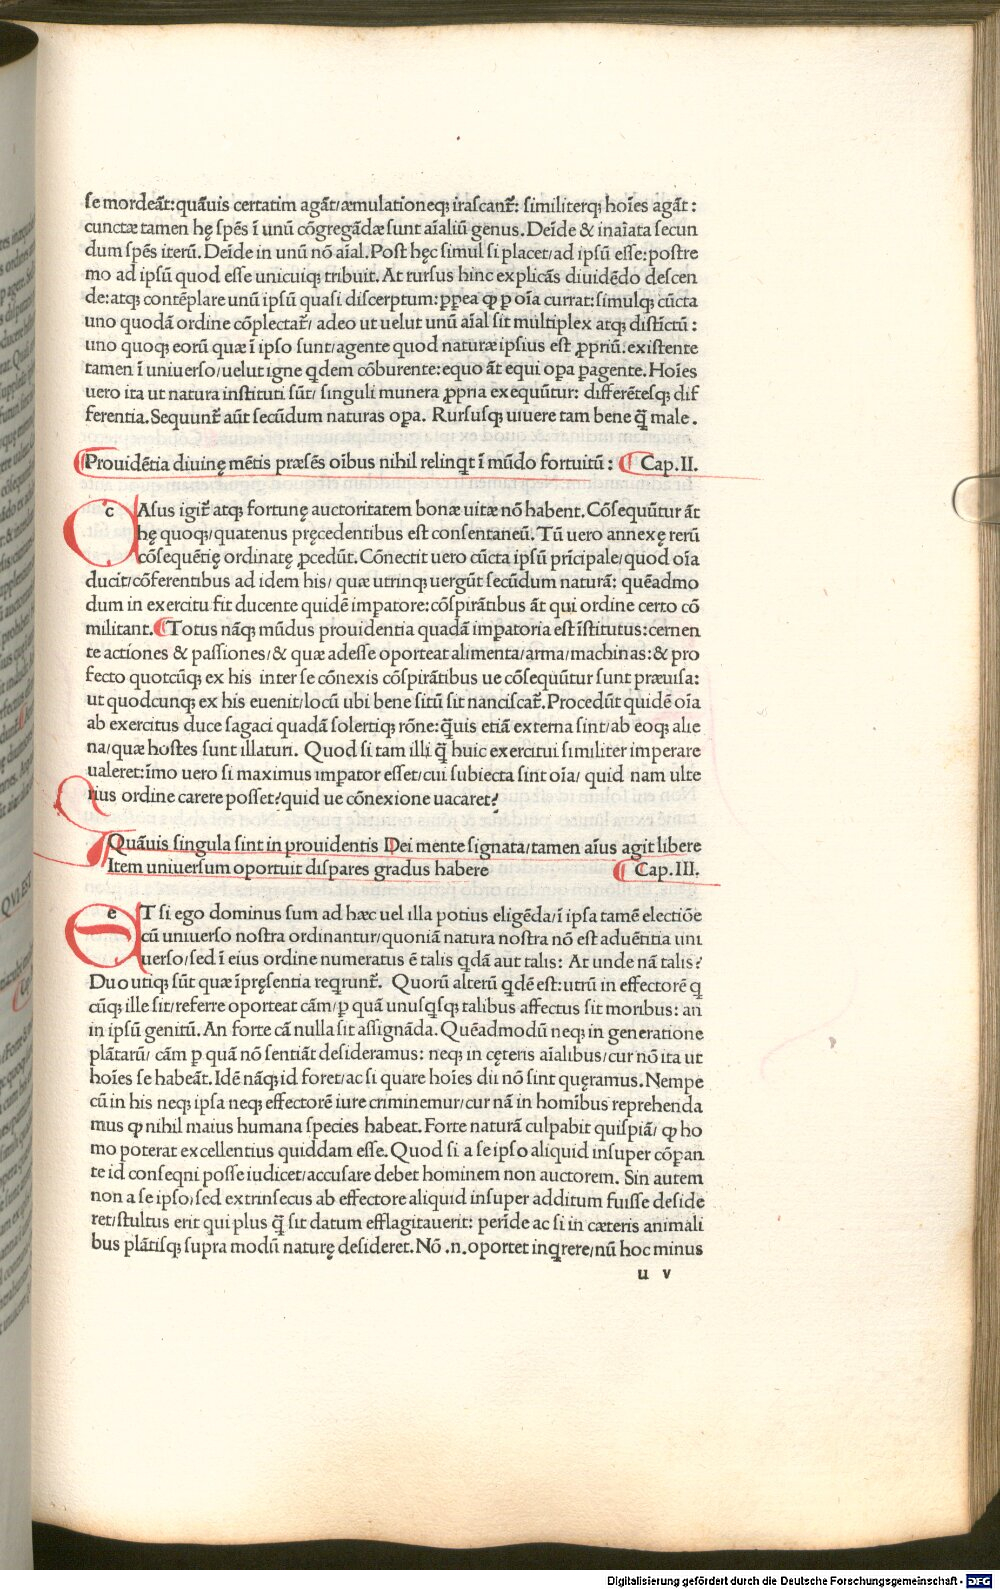 se mordeāt: quāuis certatim agāt/æmulationeq; irascant᷑: similiterq; hoīes agāt:
cunctæ tamen hę spēs ī unū cōgregādæ sunt aīaliū genus. Deīde & inaīata secun
dum spēs iterū. Deīde in unū nō aīal. Post hęc simul si placet/ad ipsū esse: postre
mo ad ipsū quod esse unicuiq; tribuit. At rursus hinc explicās diuidēdo descen
de: atq; contēplare unū ipsū quasi discerptum: ꝓpea ꝙ ꝑ oīa currat: simulq; cūcta
uno quodā ordine cōplectat᷑/ adeo ut uelut unū aīal sit multiplex atq; distīctū:
uno quoq; eorū quæ ī ipso sunt/agente quod naturæ ipsius est ꝓpriū. existente
tamen ī uniuerso/uelut igne q̇dem cōburente: equo āt equi oꝑa ꝑagente. Hoīes
uero ita ut natura instituti sūt/ singuli munera ꝓpria exequūtur: differētesq; dif
ferentia. Sequunt᷑ aūt secūdum naturas oꝑa. Rursusq; uiuere tam bene q̄ male.
Prouidētia diuinę mētis præsēs oībus nihil relinq̇t ī mūdo fortuitū: Cap. II.
cAsus igit᷑ atq; fortunę auctoritatem bonæ uitæ nō habent. Cōsequūtur āt
hę quoq;/quatenus pręcedentibus est consentaneū. Tū uero annexę rerū
cōsequētię ordinatę ꝓcedūt. Cōnectit uero cūcta ipsū prīcipale/quod oīa
ducit/cōferentibus ad idem his/ quæ utrinq; uergūt secūdum naturā: quēadmo
dum in exercitu fit ducente quidē imꝑatore: cōspirātibus āt qui ordine certo cō
militant. Totus nāq; mūdus prouidentia quadā imꝑatoria est īstitutus: cernen
te actiones & passiones/& quæ adesse oporteat alimenta/arma/machinas: & pro
fecto quotcūq; ex his inter se cōnexis cōspirātibus ue cōsequūtur sunt præuisa:
ut quodcunq; ex his euenit/locū ubi bene sitū sit nanciscat᷑. Procedūt quidē oīa
ab exercitus duce sagaci quadā solertiq; rōne: q̄uis etiā externa sint/ab eoq; alie
na/quæ hostes sunt illaturi. Quod si tam illi q̄ huic exercitui similiter imperare
ualeret: īmo uero si maximus imꝑator esset/cui subiecta sint oīa/ quid nam ulte
rius ordine carere posset? quid ue cōnexione uacaret?
Quāuis singula sint in prouidentis Dei mente signata/tamen aīus agit libere
Item uniuersum oportuit dispares gradus habere Cap. III.
eT si ego dominus sum ad hæc uel illa potius eligēda/ī ipsa tamē electiōe
cū uniuerso nostra ordinantur/quoniā natura nostra nō est aduētitia uni
uerso/sed ī eius ordine numeratus ē talis q̇dā aut talis: At unde nā talis?
Duo utiq; sūt quæ īpręsentia req̇runt᷑. Quorū alterū q̇dē est: utrū in effectorē q̇
cūq; ille sit/referre oporteat cām/ꝑ quā unusq̇sq; talibus affectus sit moribus: an
in ipsū genitū. An forte cā nulla sit assignāda. Quēadmodū neq; in generatione
plātarū/ cām ꝑ quā nō sentiāt desideramus: neq; in cęteris aīalibus/cur nō ita ut
hoīes se habeāt. Idē nāq; id foret/ac si quare hoīes dii nō sint quęramus. Nempe
cū in his neq; ipsa neq; effectorē iure criminemur/cur nā in homībus reprehenda
mus ꝙ nihil maius humana species habeat. Forte naturā culpabit quispiā/ ꝙ ho
mo poterat excellentius quiddam esse. Quod si a se ipso aliquid insuper cōꝑan
te id conseqni posse iudicet/accusare debet hominem non auctorem. Sin autem
non a se ipso/sed extrinsecus ab effectore aliquid insuper additum fuisse deside
ret/stultus erit qui plus q̄ sit datum efflagitauerit: perīde ac si in cæteris animali
bus plātisq; supra modū naturę desideret. Nō .n. oportet inq̇rere/nū hoc minus
u v
Digitalisierung gefördert durch die Deutsche Forschungsgemeinschaft - DFG